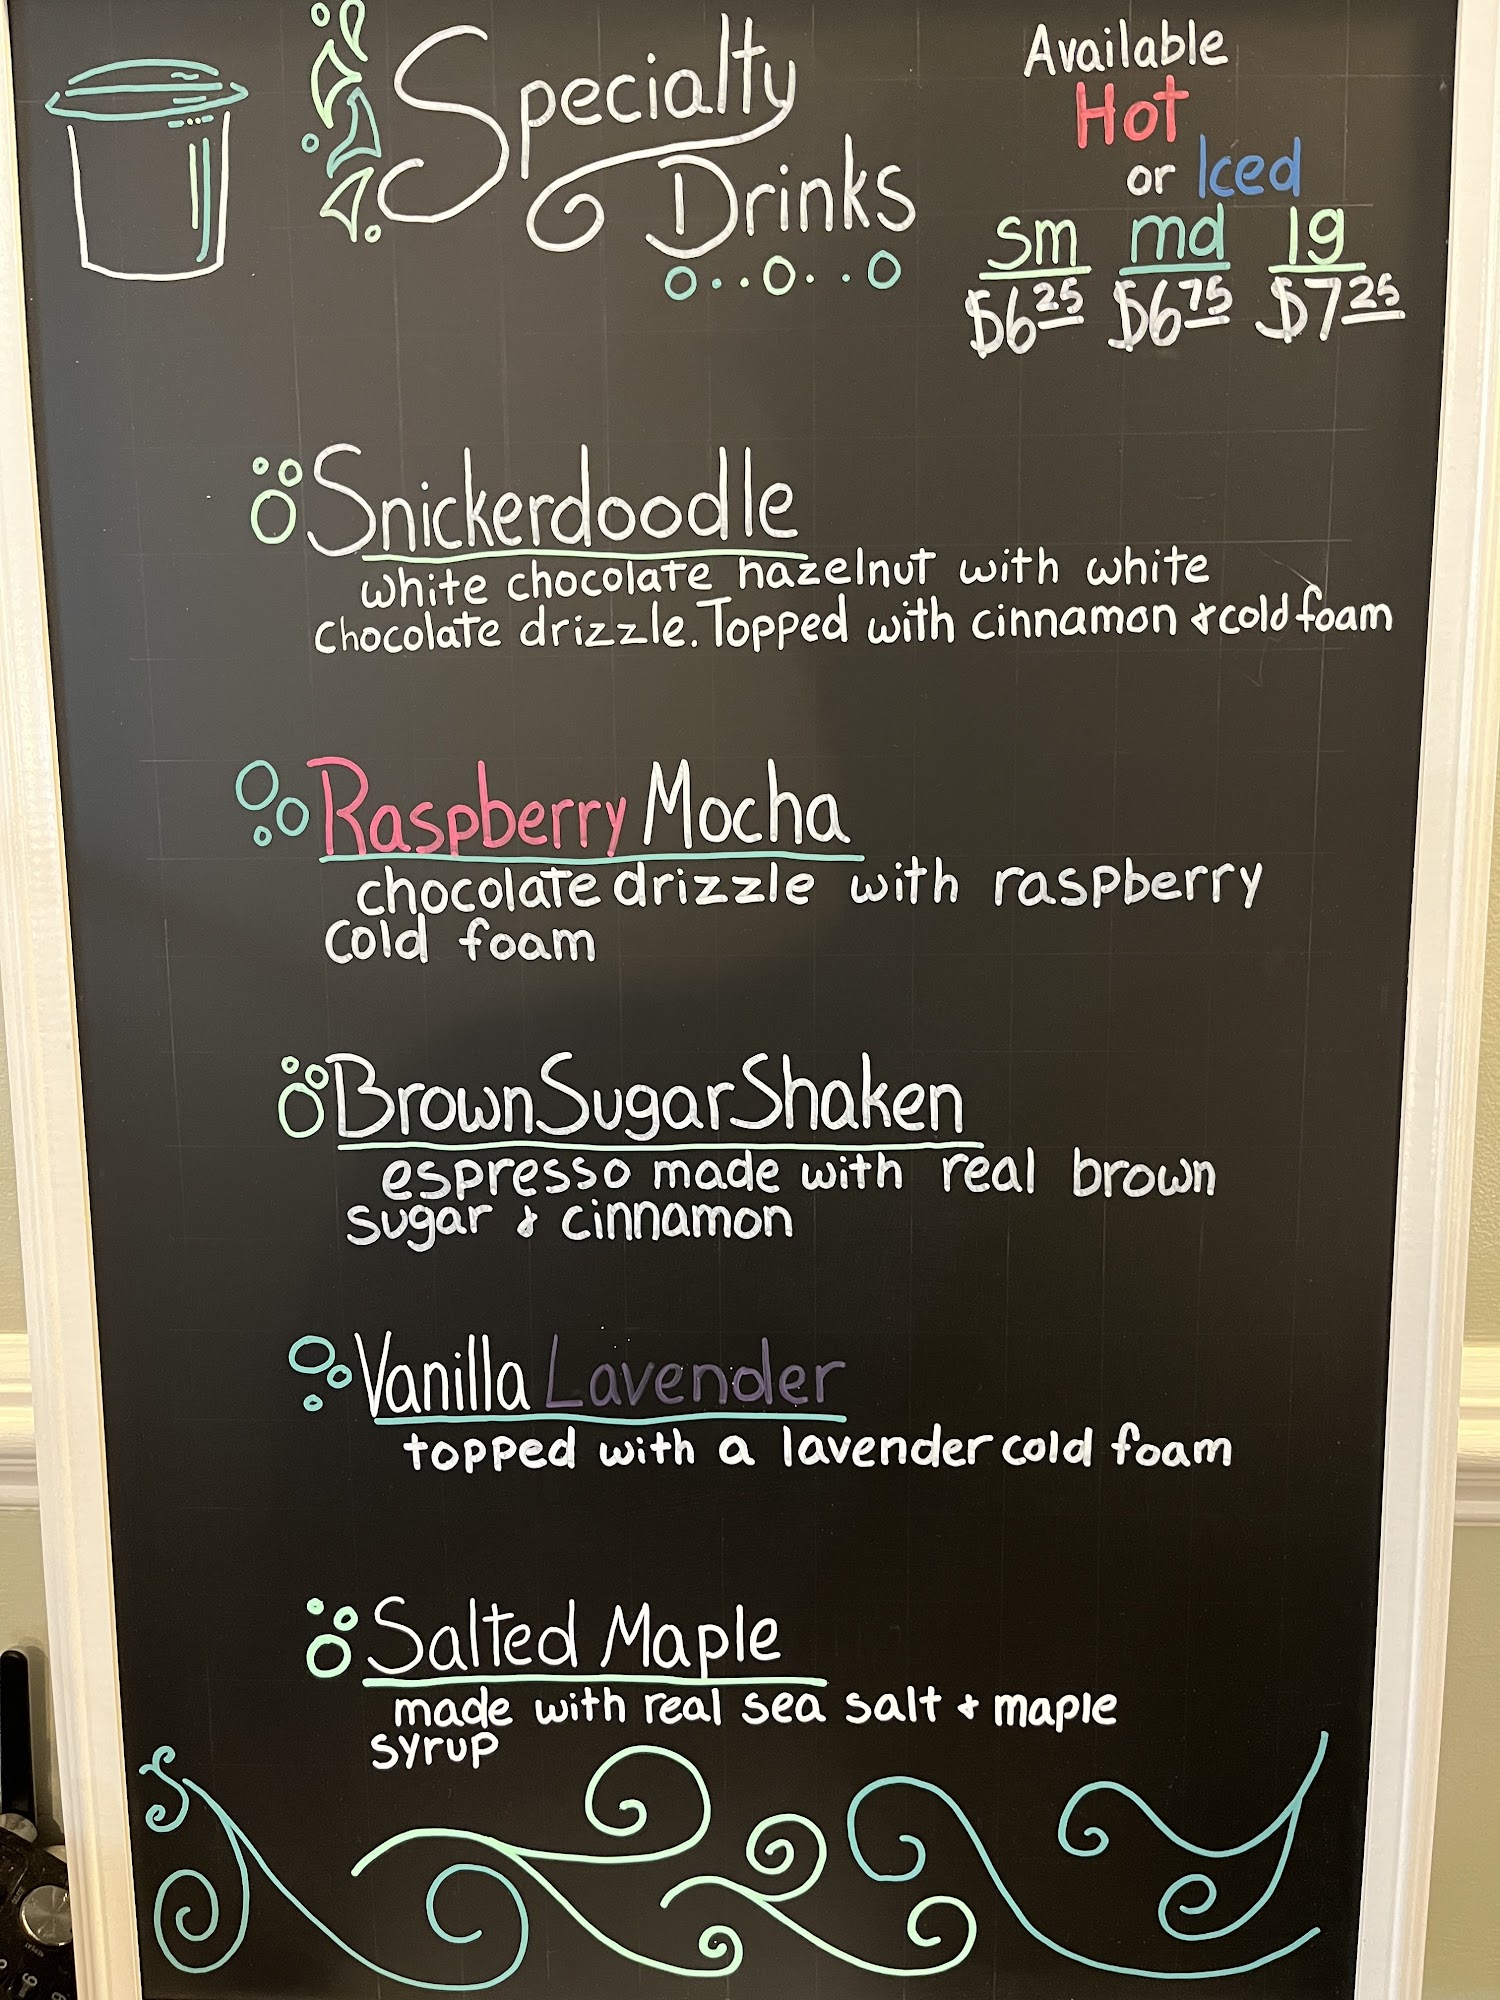 Specialty
Drinks
Available
Hot
or Iced
sm md lg
$6.25 $6.75 $7.25
Snickerdoodle
white chocolate hazelnut with white
chocolate drizzle. Topped with cinnamon & cold foam
Raspberry Mocha
chocolate drizzle with raspberry
cold foam
Brown Sugar Shaken
espresso made with real brown
sugar & cinnamon
Vanilla Lavender
topped with a lavender cold foam
Salted Maple
made with real sea salt & maple
syrup